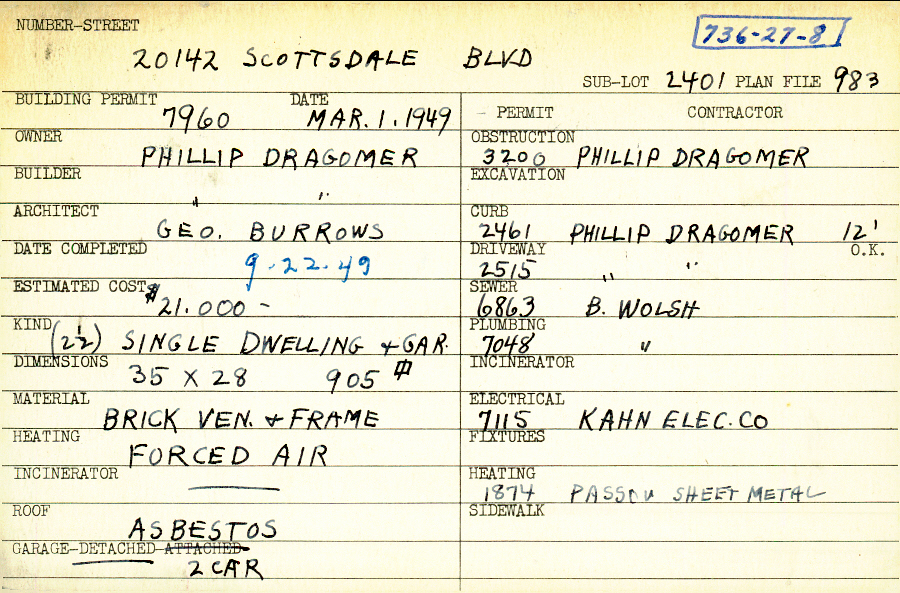 NUMBER-STREET
736-27-8
20142 SCOTTSDALE BLVD
SUB-LOT 2401 PLAN FILE 983
BUILDING PERMIT DATE
7960 MAR. 1. 1949
OWNER
PHILLIP DRAGOMER
BUILDER
" "
ARCHITECT
GEO. BURROWS
DATE COMPLETED
9-22-49
ESTIMATED COST
$21.000-
KIND
(2½) SINGLE DWELLING + GAR.
DIMENSIONS
35 X 28 905
MATERIAL
BRICK VEN. + FRAME
HEATING
FORCED AIR
INCINERATOR
ROOF
ASBESTOS
GARAGE-DETACHED ATTACHED
2 CAR
PERMIT CONTRACTOR
OBSTRUCTION
3200 PHILLIP DRAGOMER
EXCAVATION
CURB
2461 PHILLIP DRAGOMER 12'
DRIVEWAY O.K.
2515 " "
SEWER
6863 B. WOLSH
PLUMBING
7048 "
INCINERATOR
ELECTRICAL
7115 KAHN ELEC. CO
FIXTURES
HEATING
1874 SHEET METAL
SIDEWALK